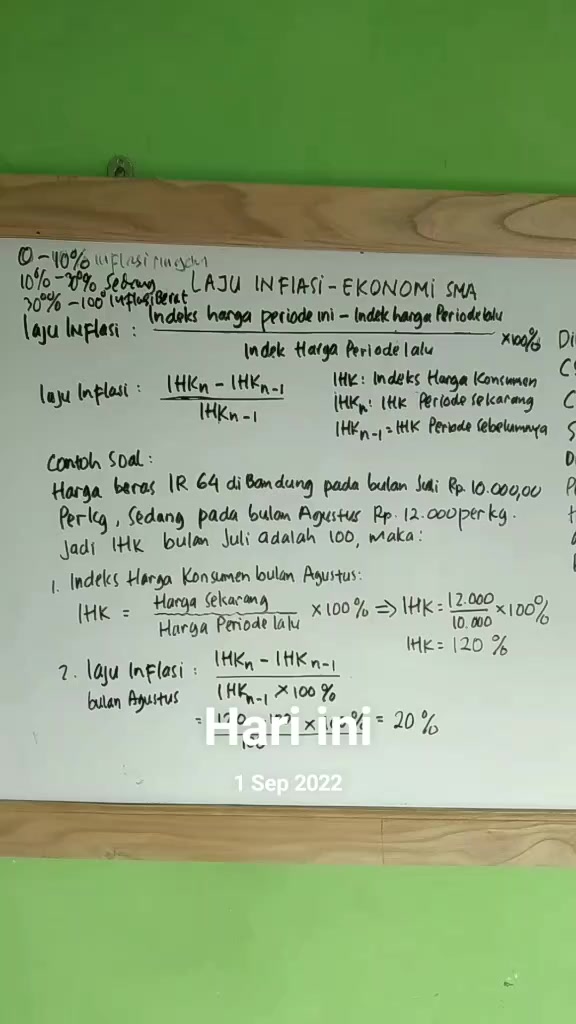 0 - 10% inflasi ringan
10% - 30% Sedang
30% - 100% Inflasi Berat
LAJU INFlASi - EKONOMI SMA
laju Inflasi : Indeks harga periode ini - Indek harga Periode lalu
Indek Harga Periode lalu
×100%
laju Inflasi : IHKn - IHKn-1
IHKn-1
IHK : Indeks Harga Konsumen
IHKn : IHK Periode sekarang
IHKn-1 = IHK Periode Sebelumnya
Contoh Soal :
Harga beras IR 64 di Bandung pada bulan Juli Rp. 10.000,00
Perkg, Sedang pada bulan Agustus Rp. 12.000 per kg.
Jadi IHK bulan Juli adalah 100, maka :
1. Indeks Harga Konsumen bulan Agustus :
IHK = Harga Sekarang
Harga Periode lalu
× 100% ⇒ IHK = 12.000
10.000
×100%
IHK = 120 %
2. laju Inflasi : IHKn - IHKn-1
bulan Agustus IHKn-1 × 100 %
= 120 - 100 × 100% = 20 %
100
Hari ini
1 Sep 2022